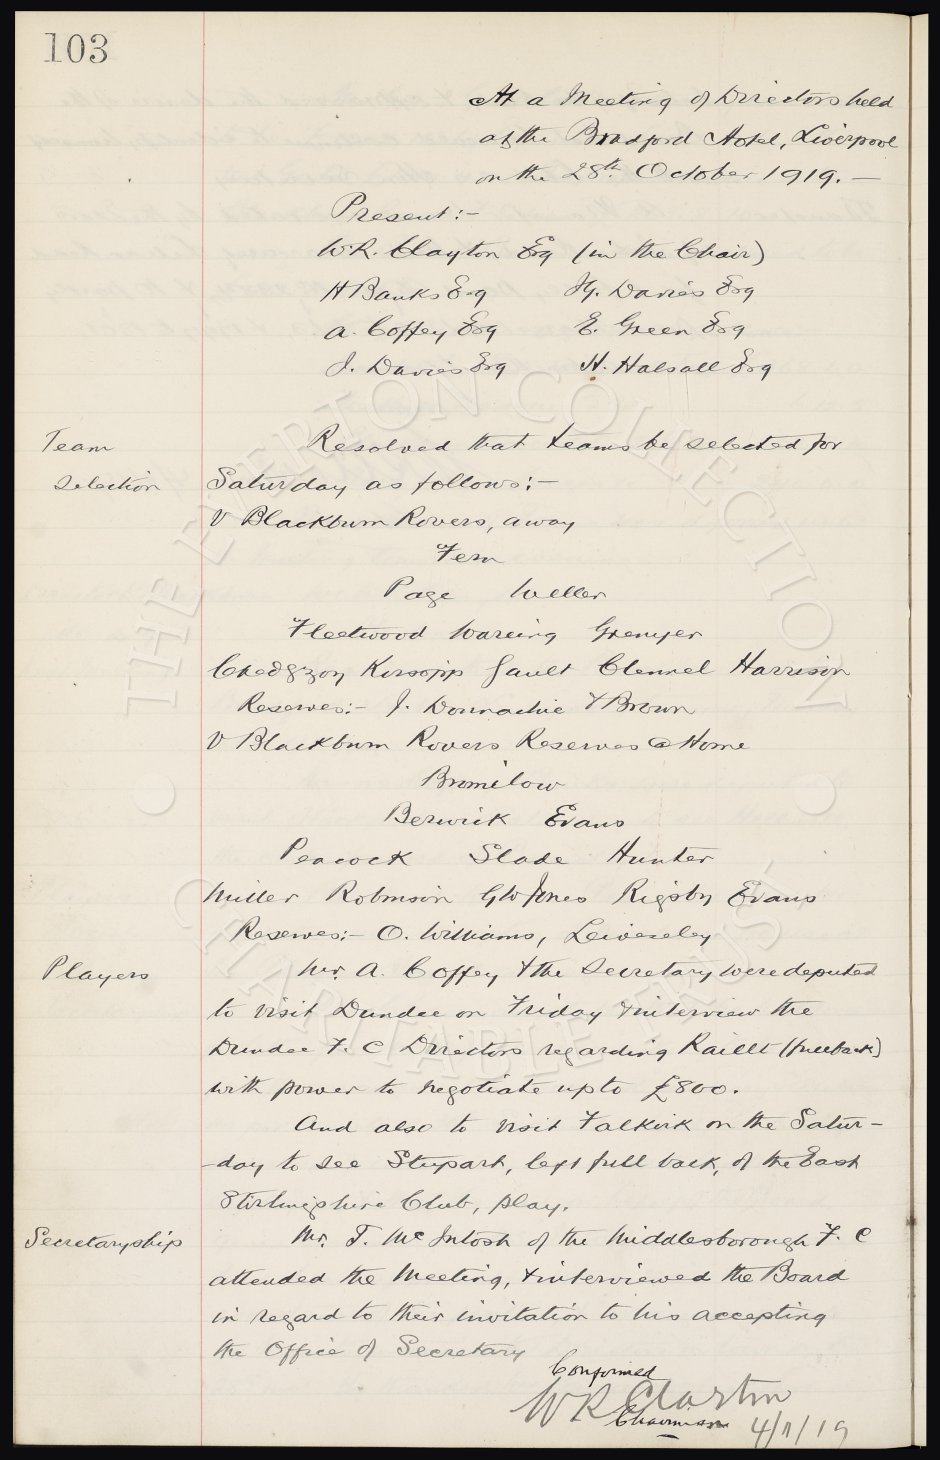 103
At a Meeting of Directors held
at the Bradford Hotel, Liverpool
on the 28th. October 1919. —
Present:-
W.R. Clayton Esq (in the Chair)
H Banks Esq Jy. Davies Esq
A. Coffey Esq E. Green Esq
J. Davies Esq H. Halsall Esq
Team Resolved that teams be selected for
selection Saturday as follows:-
V Blackburn Rovers, away
Fern
Page Weller
Fleetwood Wareing Grenyer
Chedgzoy Kirsopp Gault Clennel Harrison
Reserves:- J. Donnachie & Brown
V Blackburn Rovers Reserves @ Home
Bromilow
Berwick Evans
Peacock Slade Hunter
Miller Robinson GW Jones Rigsby Evans
Reserves:- O. Williams, Leivesley
Players Mr. A. Coffey & the Secretary were deputed
to visit Dundee on Friday & interview the
Dundee F. C Directors regarding Raillt (fullback)
with power to negotiate up to £800.
And also to visit Falkirk on the Satur-
-day to see Stupart, left full back, of the East
Stirlingshire Club, play.
Secretaryship Mr. T. McIntosh of the Middlesborough F. C
attended the Meeting, & interviewed the Board
in regard to their invitation to his accepting
the Office of Secretary
Confirmed
W R Clayton
Chairman 4/11/19
THE EVERTON COLLECTION
CHARITABLE TRUST